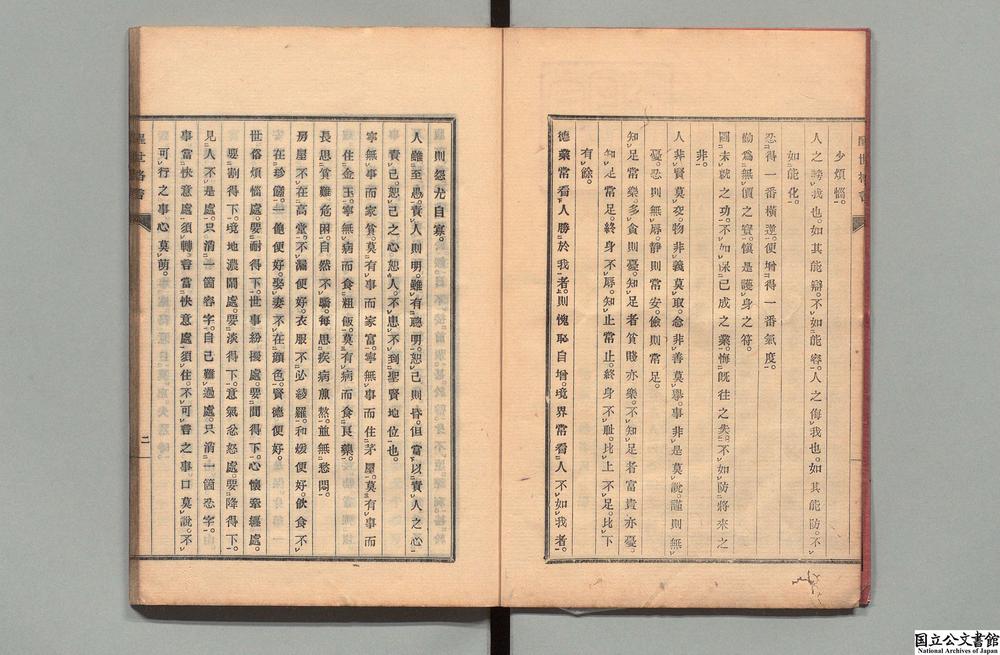 少煩惱。
人之謗我也。如其能辯。不如能容。人之侮我也。如其能防。不
如能化。
忍得一番橫逆。便增得一番氣度。
勤爲無價之寶。愼是護身之符。
圖未就之功。不如保已成之業。悔旣往之失。不如防將來之
非。
人非賢莫交。物非義莫取。念非善莫擧。事非是莫說。謹則無
憂。忍則無辱。靜則常安。儉則常足。
知足常樂。多貪則憂。知足者貧賤亦樂。不知足者富貴亦憂。
知足常足。終身不辱。知止常止。終身不耻。比上不足。比下
有餘。
德業常看人勝於我者。則愧恥自增。境界常看人不如我者。
醒世格言
人則怨尤自寡。
人雖至愚。責人則明。雖有聰明。恕己則昏。但當以責人之心
責己。恕己之心恕人。不患不到聖賢地位也。
寧無事而家貧。莫有事而家富。寧無事而住茅屋。莫有事而
住金玉。寧無病而食粗飯。莫有病而食良藥。
長思貧難危困。自然不驕。每思疾病煎熬。並無愁悶。
房屋不在高堂。不漏便好。衣服不必綾羅。和媛便好。飮食不
在珍饈。一飽便好。娶妻不在顔色。賢德便好。
世俗煩惱處。要耐得下。世事紛擾處。要閒得下。心懷牽纏處。
要割得下。境地濃鬧處。要淡得下。意氣忿怒處。要降得下。
見人不是處。只消一箇容字。自己難過處。只消一箇忍字。
事當快意處須轉。言當快意處須住。不可言之事口莫說。不
可行之事心莫萌。
二
国立公文書館
National Archives of Japan